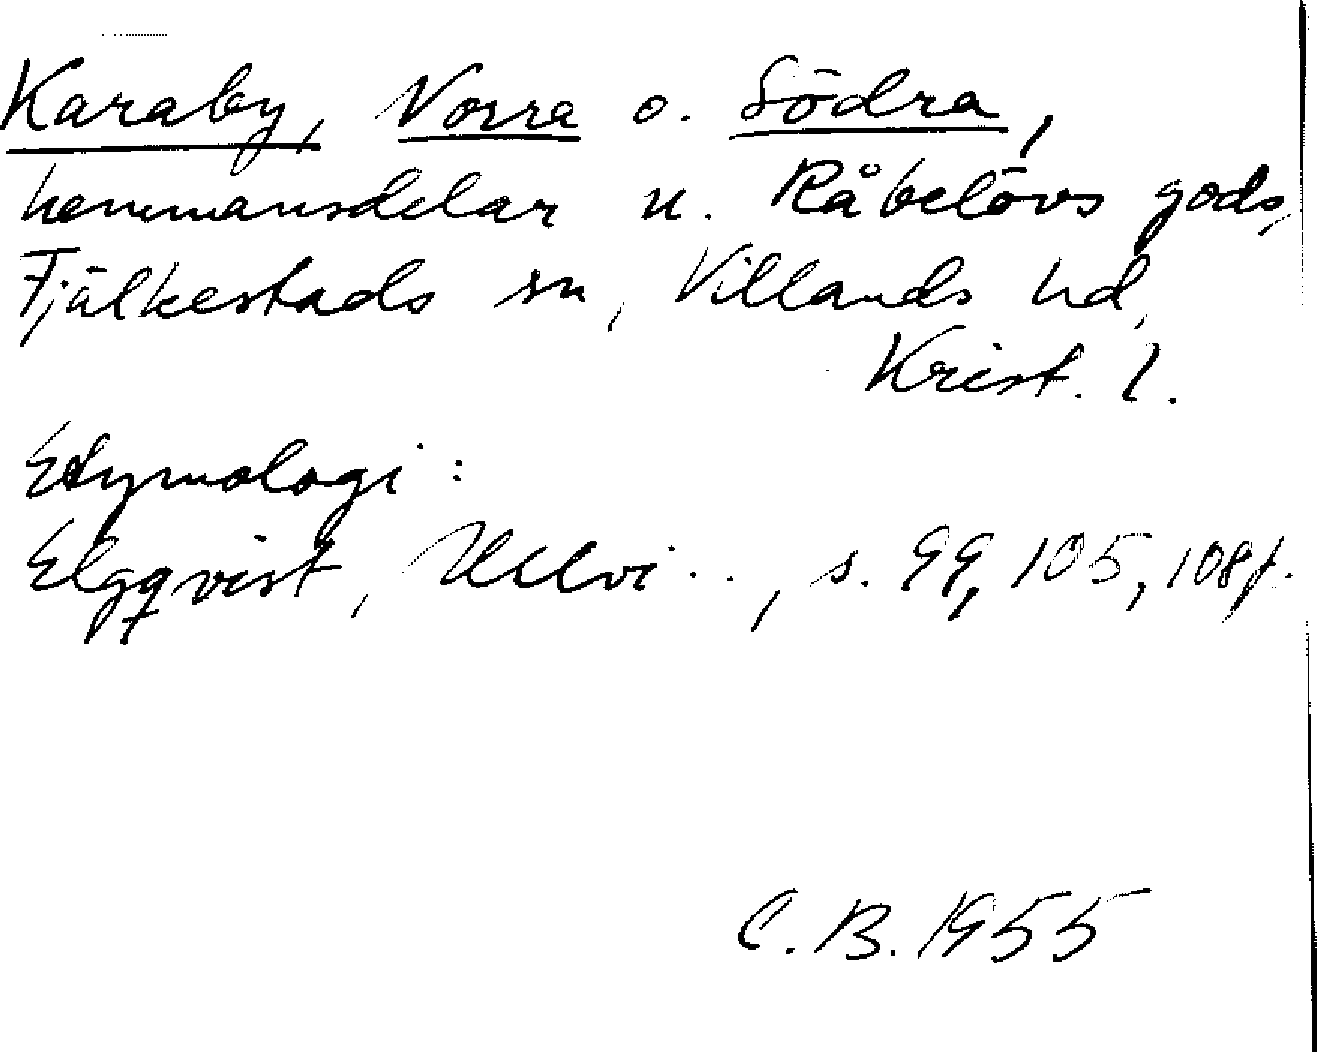 Karaby, Norra o. Södra,
hemmansdelar u. Råbelövs gods,
Fjälkestads sn, Villands hd,
Krist. l.
Etymologi:
Elgqvist, Ullvi..., s. 99, 105, 108f.
C.B. 1955